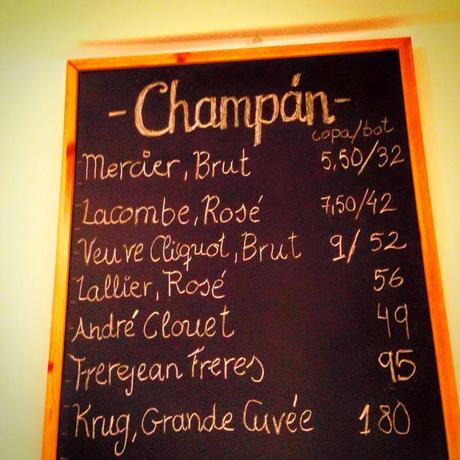 - Champán -
copa/bot
Mercier, Brut 5,50/32
Lacombe, Rosé 7,50/42
Veuve Clicquot, Brut 9/52
Lallier, Rosé 56
André Clouet 49
Frerejean Freres 95
Krug, Grande Cuvée 180